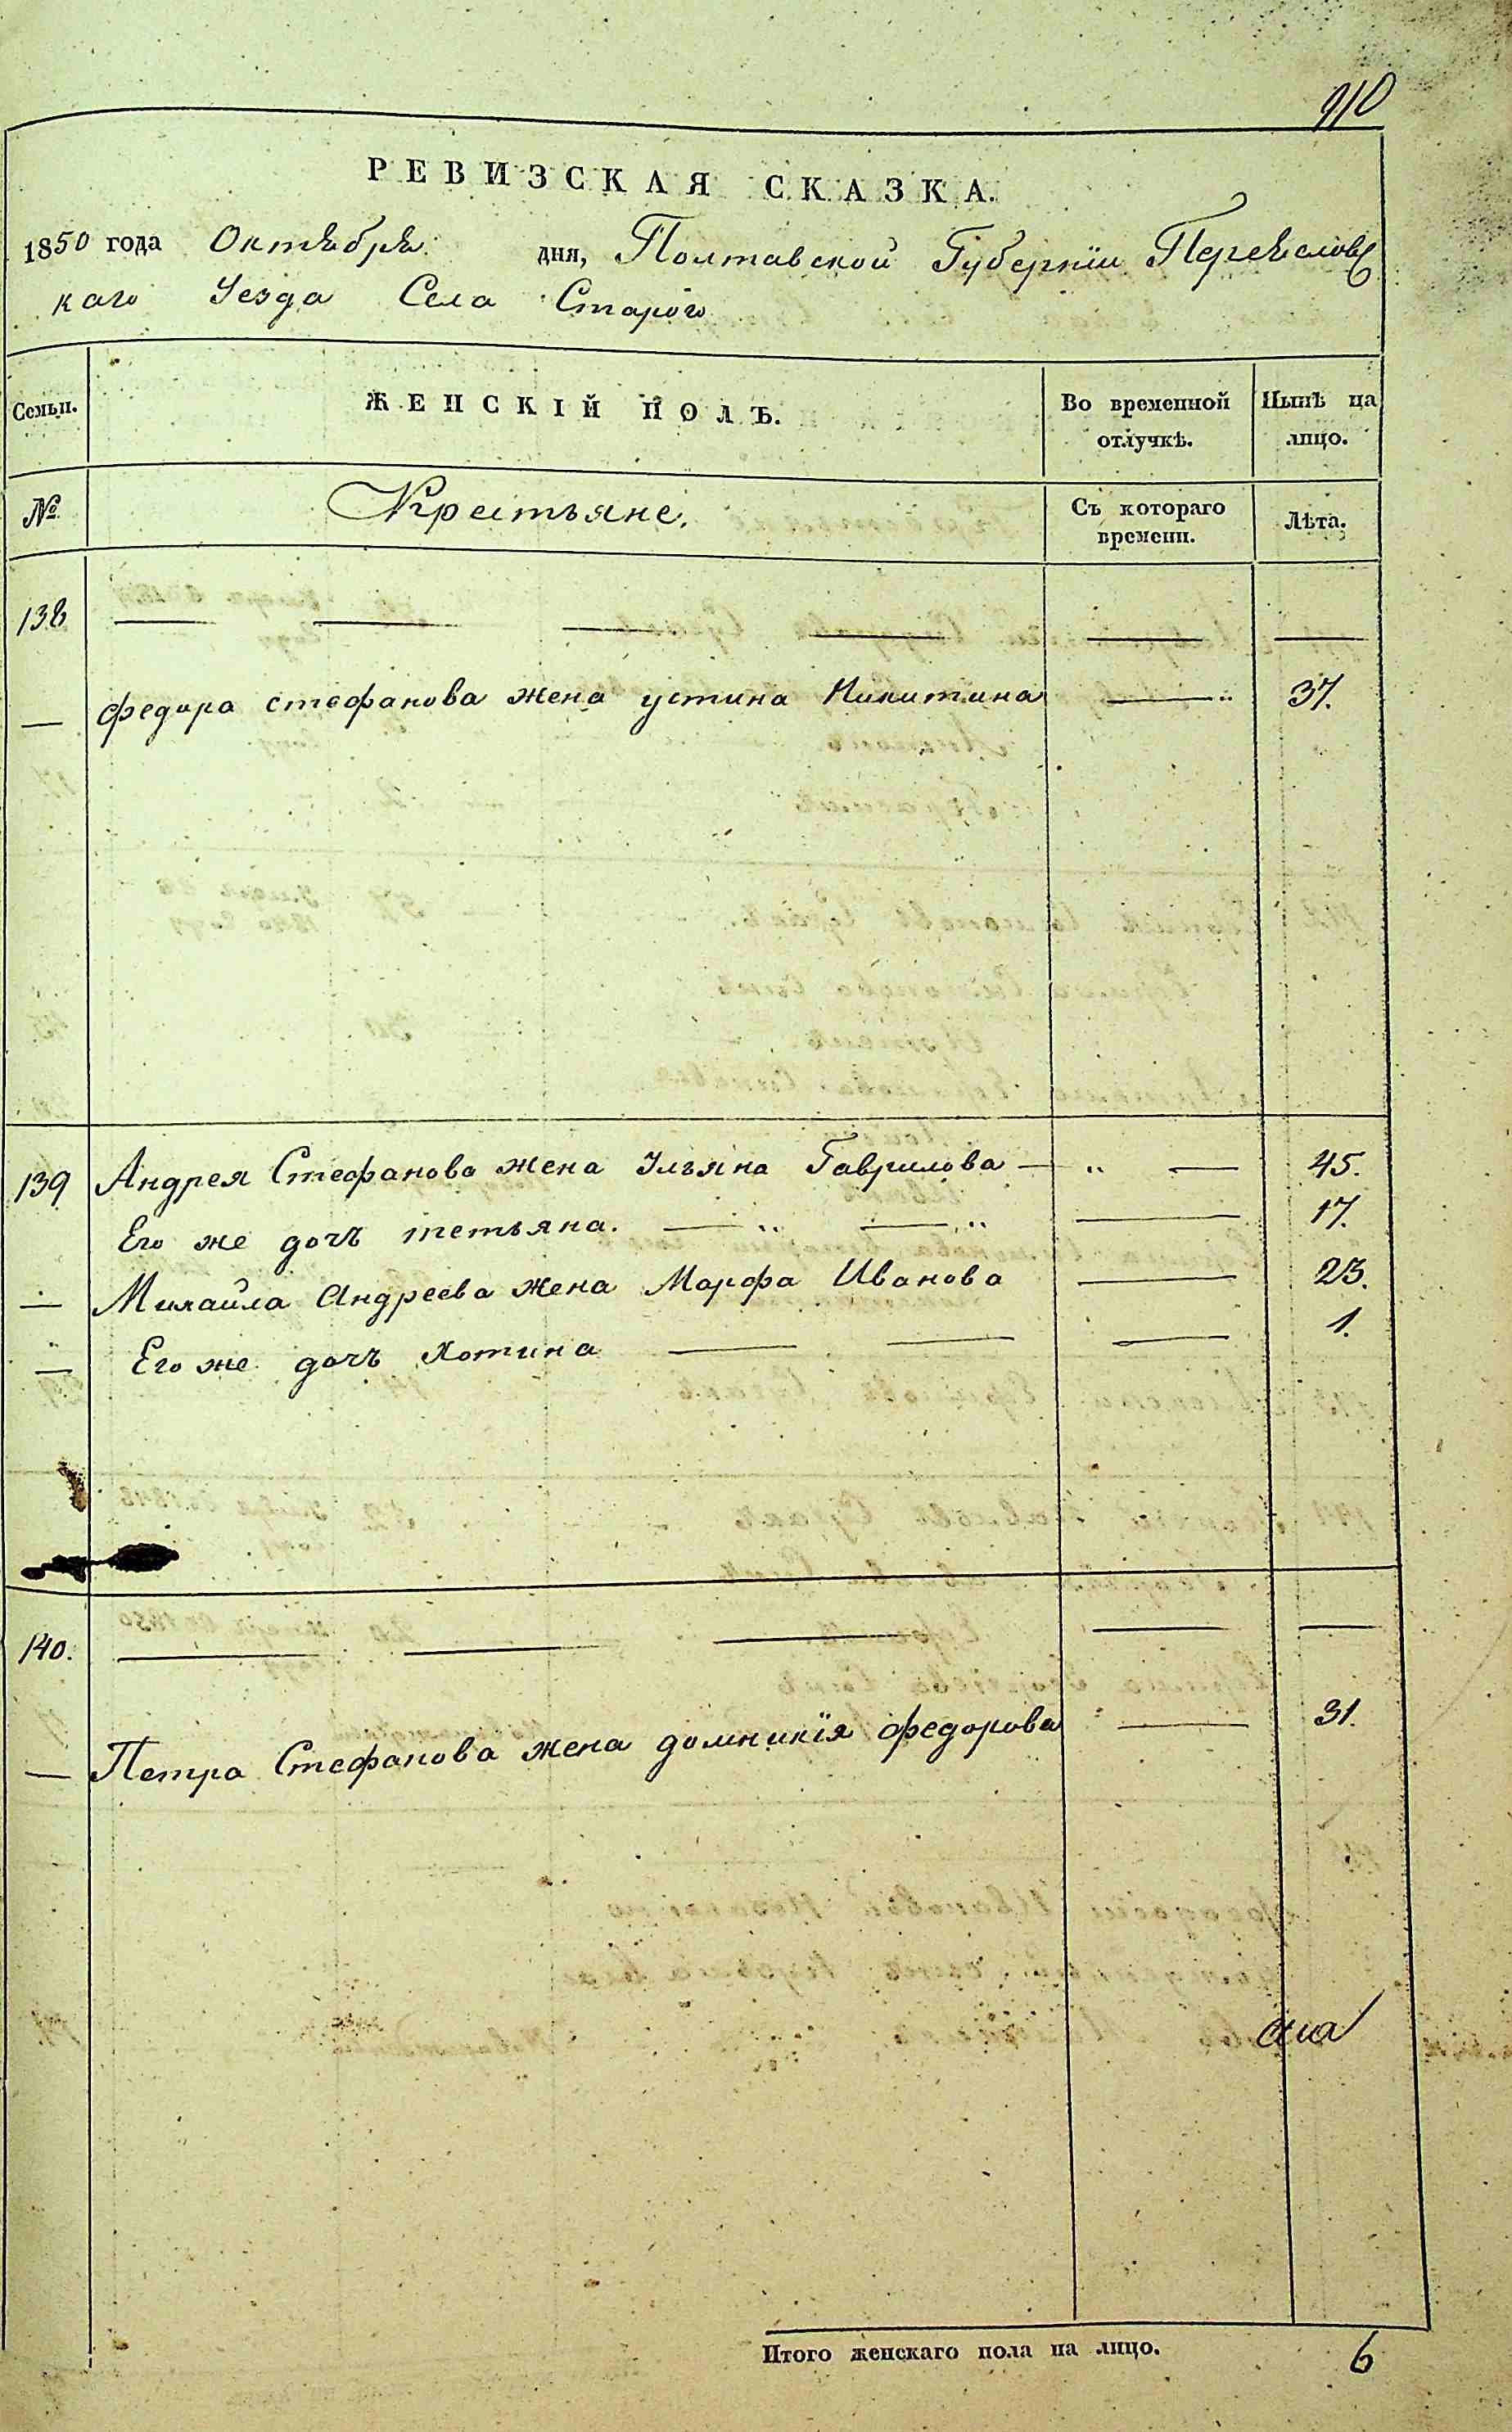 910
РЕВИЗСКАЯ СКАЗКА.
1850 года Октября дня, Полтавской Губернїи Переяслов
каго Уезда Села Старого
Семьи. ЖЕНСКІЙ ПОЛЪ. Во временной отлучкѣ. Нынѣ на лицо.
№ Крестьяне. Съ котораго времени. Лѣта.
138
— федора стефанова жена устина Никитина — 37.
139 Андрея Стефанова жена Ульяна Гаврилова — 45.
Его же дочь тетьяна. — 17.
— Михайла Андреева жена Марфа Иванова — 23.
— Его же дочь Хотина — 1.
140.
— Петра Стефанова жена домникїя федорова — 31.
Итого женскаго пола на лицо. 6